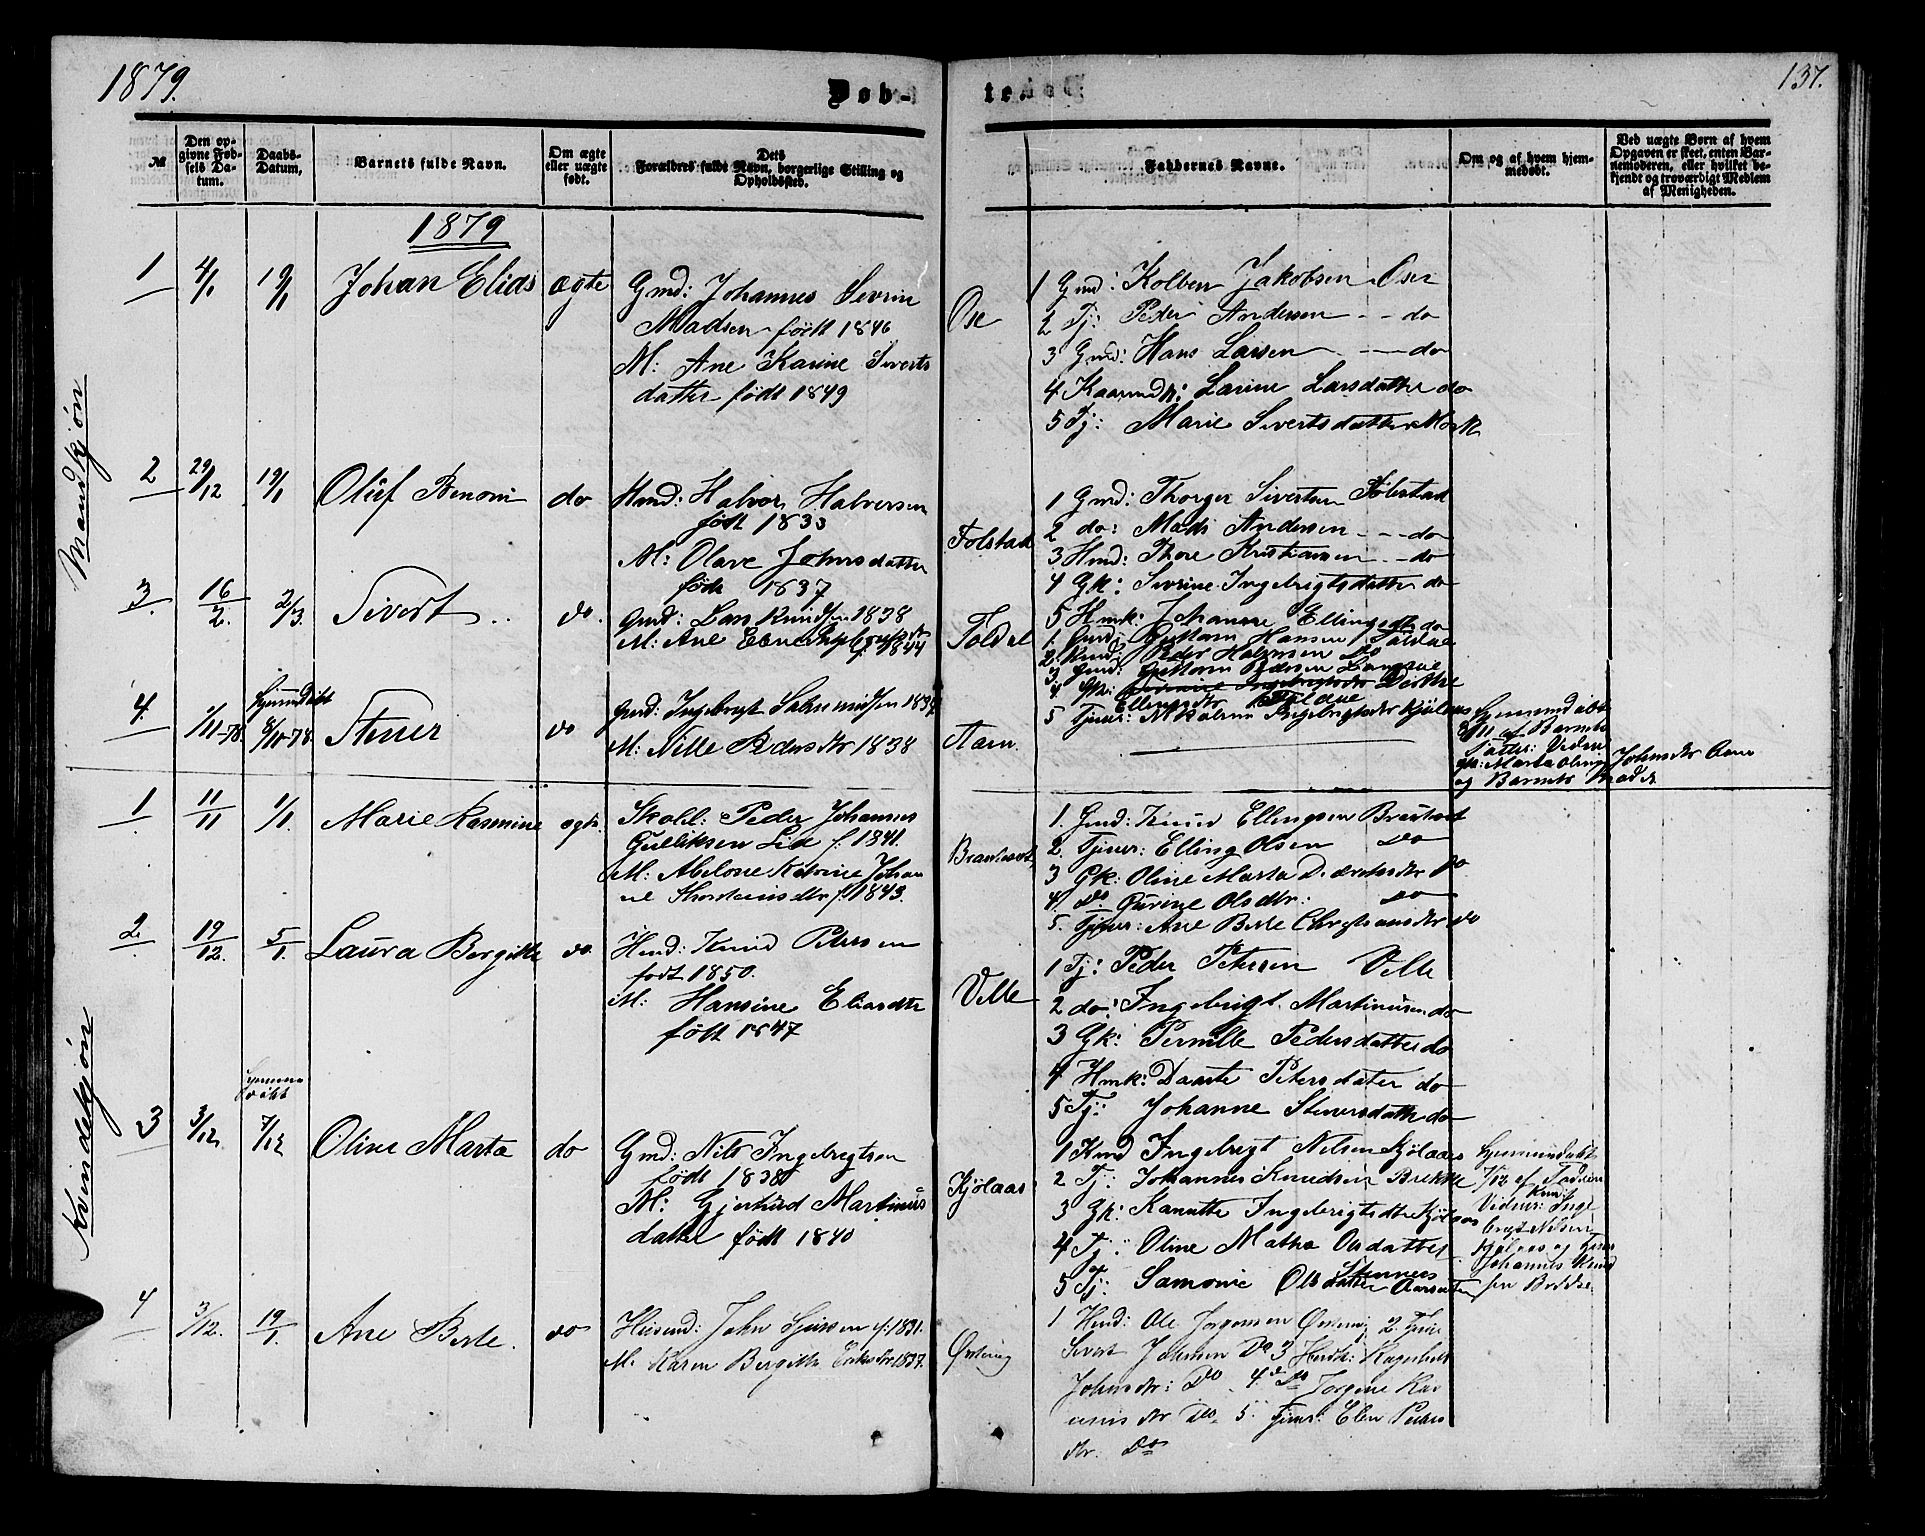 1879.
Døb-
137.
№
Den op-
givne Fød-
sels Da-
tum.
Daabs-
Datum,
Barnets fulde Navn.
Om ægte
eller uægte
født.
Dets
Forældres fulde Navn, borgerlige Stilling og
Opholdssted.
Faddernes Navne.
Om og af hvem hjem-
medøbt.
Ved uægte Børn af hvem
Opgaven er skeet, enten Bar-
nemoderen, eller hvilket be-
kjendt og troværdigt Medlem
af Menigheden.
1879
Mandkjøn
1
4/1
19/1
Johan Elias
ægte
Gmd: Johannes Sevrin
Madsen født 1846
M: Ane Karine Siverts
datter født 1849
Ose
1 Gmd: Kolben Jakobsen Ose
2 Tj: Peder Andersen - - do
3 Gmd: Hans Larsen - - do
4 Larine Larsdatter do
5 Tj: Marie Sivertsdatter Mork
2
29/12
19/1
Oluf Benoni
do
Hmd: Halvor Halvorsen
født 1833
M: Olave Johnsdatter
født 1837
Folstad
1 Gmd: Thorger Sivertsen Folstad
2 do: Mads Andersen - - do
3 Hmd: Thore Kristiansen - - do
4 Gk: Sevrine Ingebrigtsdatter do
5 Hmk: Johanne Ellingsdtr do
3.
16/2.
2/3.
Sivert
do.
Gmd: Lars Knudsen 1838
M: Ane 1844
1. Gmd: Hansen
2. Peder Halvorsen Do
3. Gmd:
4. Gk:
Ellingsdtr
5 Tjener: Ingebrigtsdtr Kjølaas
4.
1/11-78.
Hjemmedøbt
8/11-78.
Stener
do
Gmd: Ingebrigt
M: Nille Pedersdtr 1838
Aam.
Hjemmedøbt
8/11 af Barnets
Fader: Vidne
Marta Oline Johnsdtr Aam
og Barnets Moder
Kvindekjøn
1
11/11
1/1
Marie Rasmine
ægte
Skoll: Peder Johannes
Gulliksen Lid f. 1841.
M: Abelone Katrine Johan
ne Thorsteinsdtr f. 1843.
1. Gmd: Knud Ellingsen
2. Tjener: Elling Olsen Do
3 Gk: Oline Marta Do
4. Do Gurine Olsdtr: Do
5. Tjener: Ane Berte Christiansdtr Do
2
19/12.
5/1
Laura Bergitte
do
Hmd: Knud Petersen
født 1850.
M: Hansine Eliasdtr
født 1847
Velle
1 Tj: Peder Petersen Velle
2 do: Ingebrigt Martinusen do
3 Gk: Pernille Pedersdatter do
4 Hmk: Daarte Petersdatter do
5 Tj: Johanne Steversdatter do
3
3/12.
Hjemme
døbt
7/12
Oline Marta
do
Gmd: Nils Ingebrigtsen
født 1838
M: Gjertrud Martinus
datter født 1840
Kjølaas
1 Kmd Ingebrigt Nelsen Kjølaas
2 Tj: Johannes Knudsen Brekke
3 Gk: Kanutte Ingebrigtsdtr Kjølaas
4 Tj: Oline Mathea Olsdatter
Stennes
5 Tj: Samonie Olsdatter Aarseter
Hjemmedøbt
7/12 af Faderen
Vidner: Kmd: Inge
brigt Nelsen
Kjølaas og Tjener
Johannes Knud
sen Brekke.
4
3/12.
19/1
Ane Berte.
do
Huusmd: John f: 1831.
M. Karen Bergitte Eriksdtr 1837.
Østeng
1 Hmd: Ole Jorgensen Østeng 2. Tjener
Sivert Johnsen Do 3
Johnsdtr: Do 4. Do Jorgine Ras
musdtr Do 5. Tjener: Elen Peders
dtr. Do